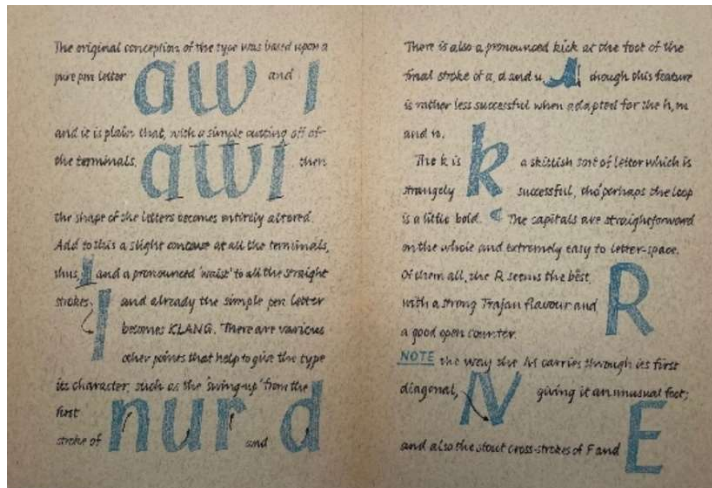 The original conception of the type was based upon a
pure pen letter awi and i
and it is plain that, with a simple cutting off of
the terminals, awi then
the shape of the letters becomes entirely altered.
Add to this a slight concave at all the terminals,
thus, i and a pronounced 'waist' to all the straight
strokes. l and already the simple pen letter
becomes KLANG. There are various
other points that help to give the type
its character, such as the 'swing-up' from the
first
stroke of nur and d
There is also a pronounced kick at the foot of the
final stroke of a, d and u, though this feature
is rather less successful when adapted for the h, m
and n.
The k is k a skittish sort of letter which is
strangely successful, tho' perhaps the loop
is a little bold. The capitals are straightforward
on the whole and extremely easy to letter-space.
Of them all, the R seems the best,
with a strong Trajan flavour and R
a good open counter.
NOTE the way the M carries through its first
diagonal, giving it an unusual foot;
and also the stout cross-strokes of F and E